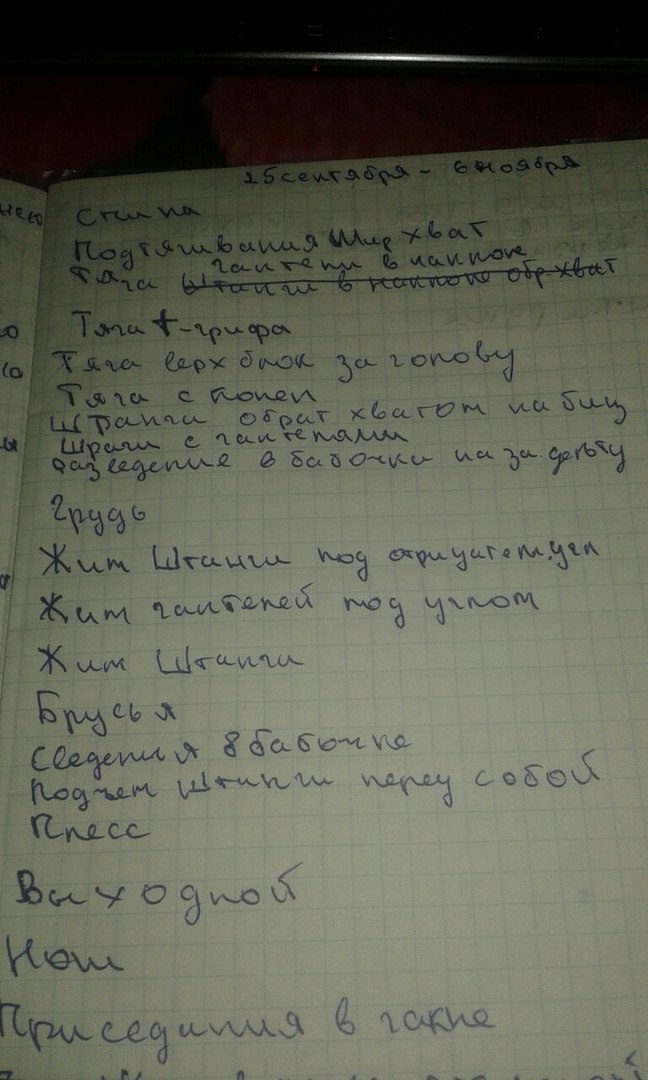 25 сентября - 6 ноября
Спина
Подтягивания Шир хват
гантели в наклоне
Тяга Штанги в наклоне обр. хват
Тяга t-грифа
Тяга верх блок за голову
Тяга с колен
Штанги обрат хватом на биц
Шраги с гантелями
разведение в бабочки на за. дельту
Грудь
Жим Штанги под отрицател. угл
Жим гантелей под углом
Жим Штанги
Брусья
Сведения в бабочке
Подъем Штанги перед собой
Пресс
Выходной
Ноги
Приседания в гакке